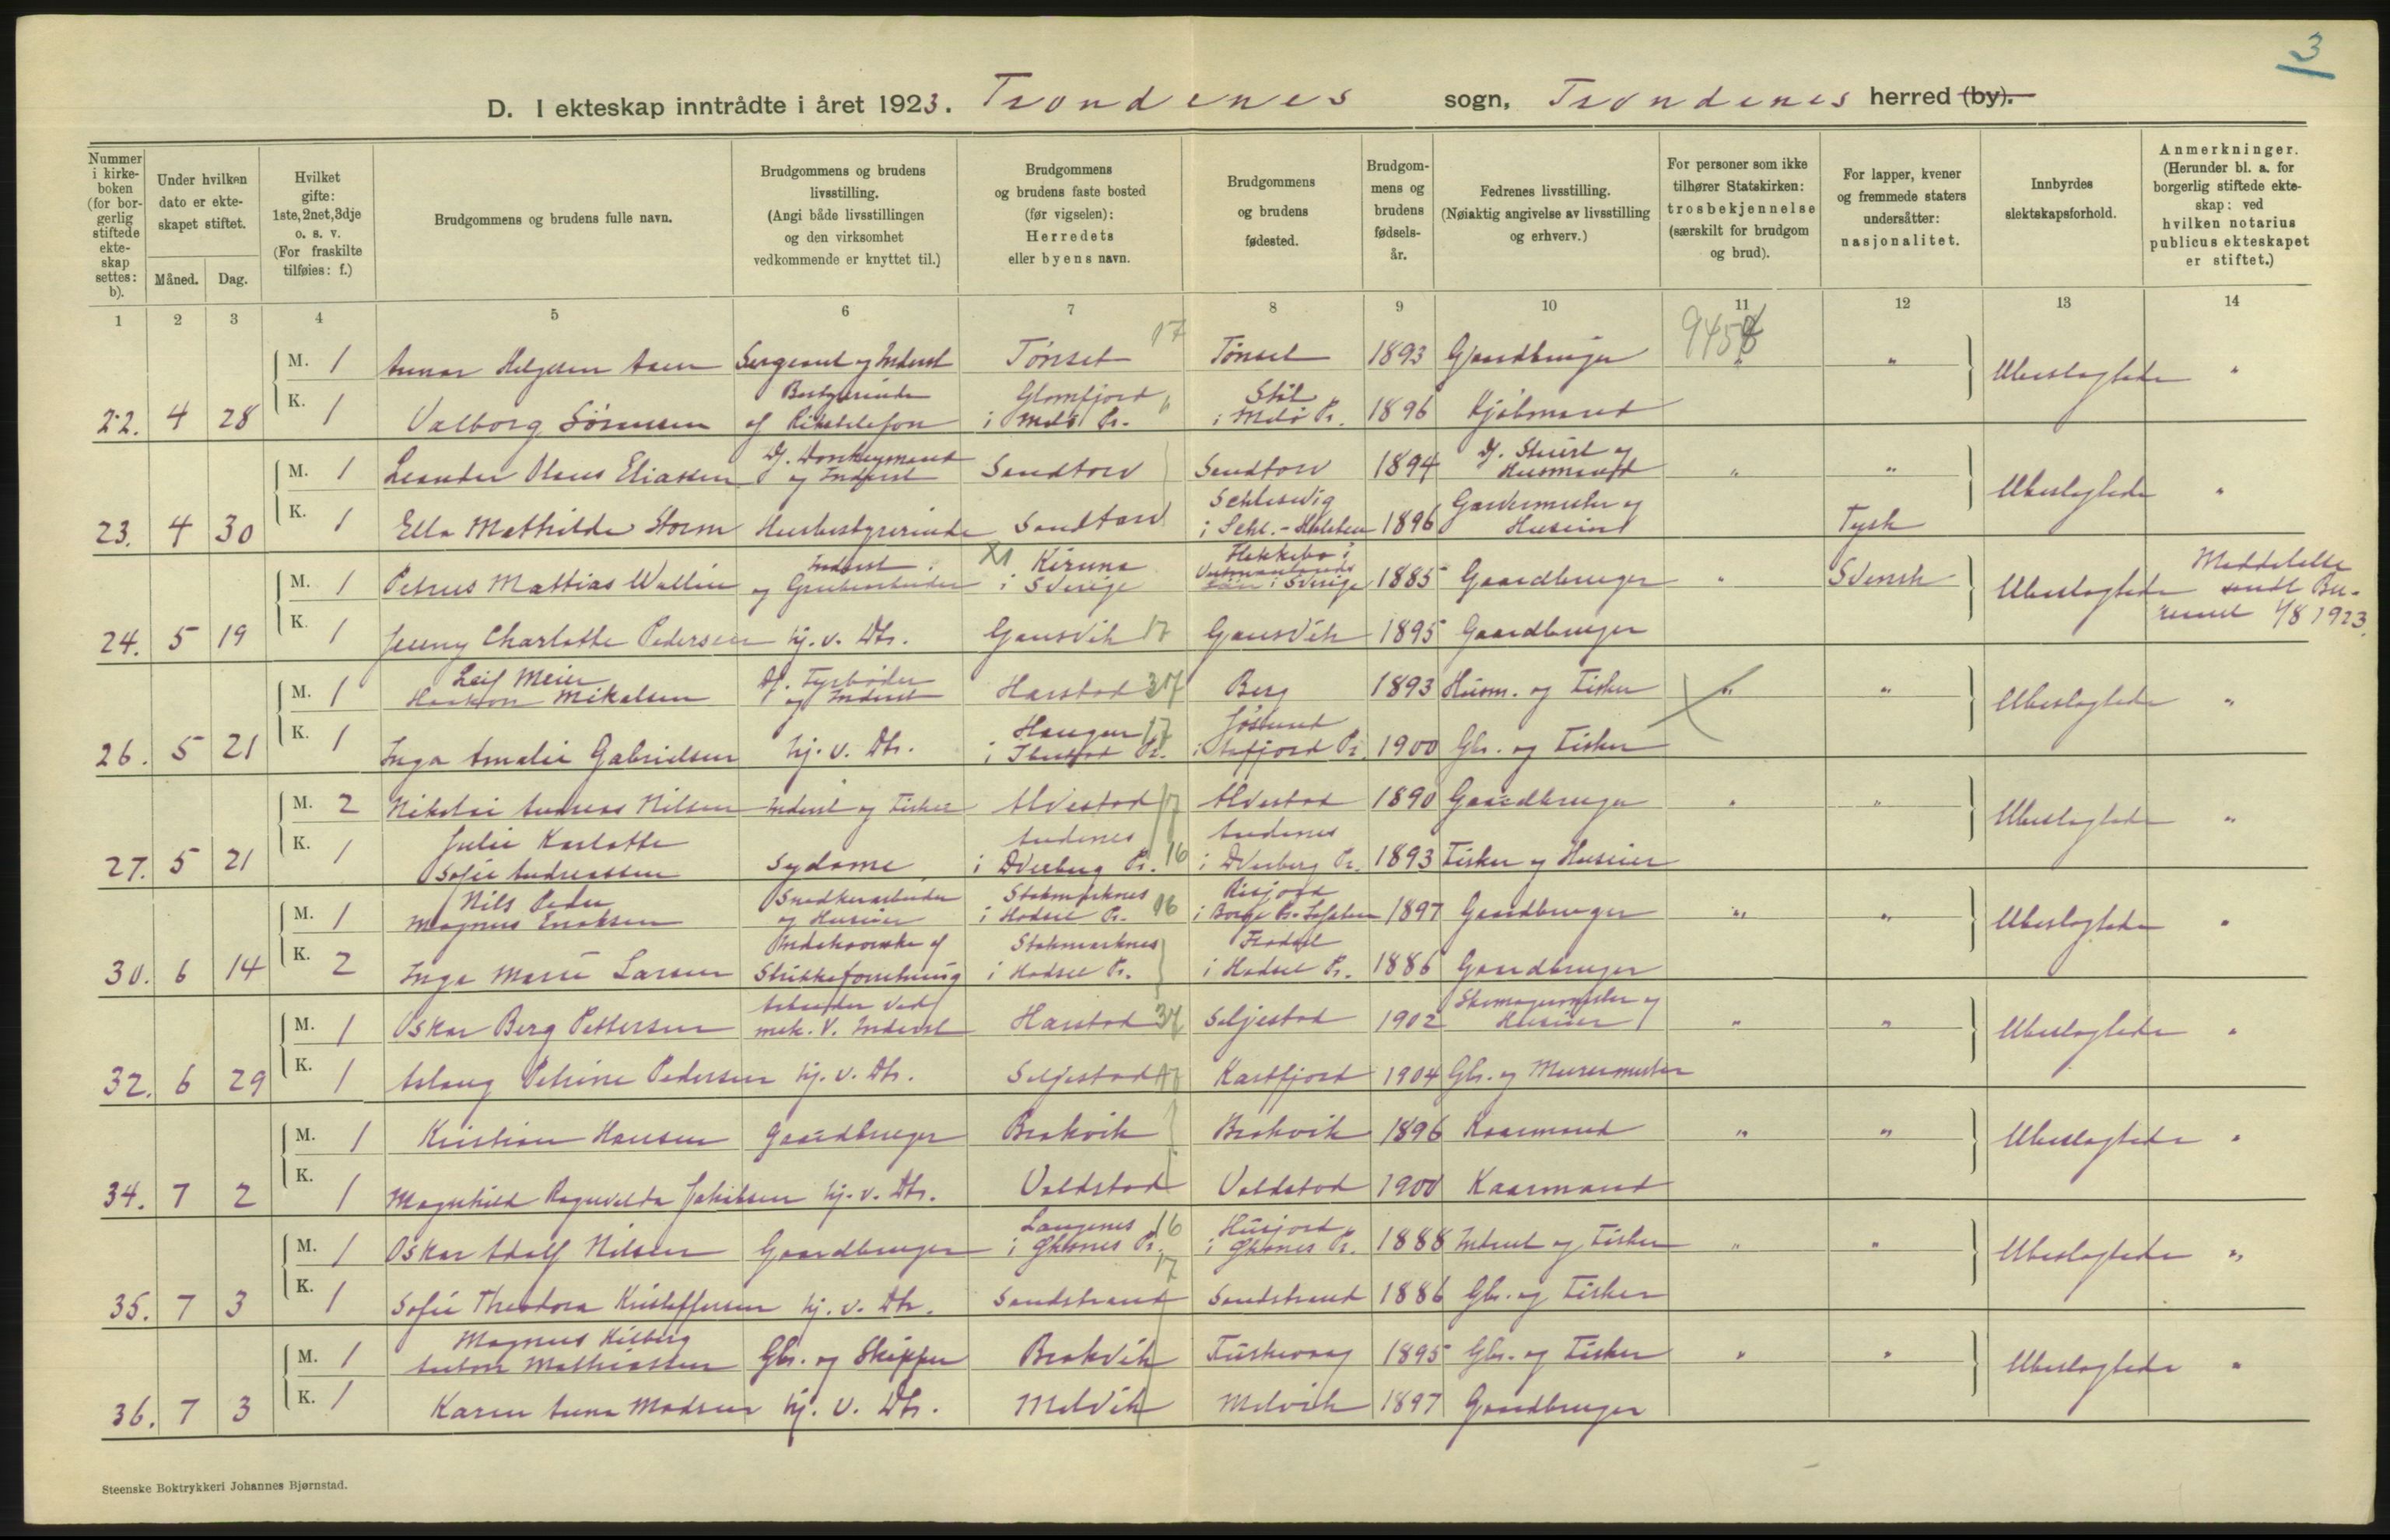 3
D. I ekteskap inntrådte i året 1923. Trondenes sogn, Trondenes herred (by).
Nummer i kirkeboken (for borgerlig stiftede ekteskap settes: b).
Under hvilken dato er ekteskapet stiftet.
Måned. Dag.
Hvilket gifte: 1ste, 2net, 3dje o. s. v. (For fraskilte tilføies: f.)
Brudgommens og brudens fulle navn.
Brudgommens og brudens livsstilling. (Angi både livsstillingen og den virksomhet vedkommende er knyttet til.)
Brudgommens og brudens faste bosted (før vigselen): Herredets eller byens navn.
Brudgommens og brudens fødested.
Brudgommens og brudens fødselsår.
Fedrenes livsstilling. (Nøiaktig angivelse av livsstilling og erhverv.)
For personer som ikke tilhører Statskirken: trosbekjennelse (særskilt for brudgom og brud).
For lapper, kvener og fremmede staters undersåtter: nasjonalitet.
Innbyrdes slektskapsforhold.
Anmerkninger. (Herunder bl. a. for borgerlig stiftede ekteskap: ved hvilken notarius publicus ekteskapet er stiftet.)
1 2 3 4 5 6 7 8 9 10 11 12 13 14
M. 1 Gunnar Helgesen Aaen Sergeant og Inderst Tønset 17 Tønset 1893 Gaardbruger " " Ubeslægtede "
22. 4 28 K. 1 Valborg Sørensen Bestyrerinde af Rikstelefon Glomfjord i Melø Pr. " Støt i Melø Pr. 1896 Kjøbmand
M. 1 Leander Olaus Eliassen Df. Donkeymand og Inderst Sandtorv Sandtorv 1894 Df. Stuert og Husmand " " Ubeslægtede "
23. 4 30 K. 1 Ella Mathilde Storm Husbestyrerinde Sandtorv Schleswig i Schl.-Holstein 1896 Garvermester og Huseier Tysk
M. 1 Petrus Mattias Wallin Inderst og Grubearbeider X1 Kiruna i Sverige i Sverige 1885 Gaardbruger " Svensk Ubeslægtede Meddelelse sendt Bureauet 1/8 1923.
24. 5 19 K. 1 Jenny Charlotte Pedersen hj. v. Dtr. Gausvik 17 Gausvik 1895 Gaardbruger
M. 1 Leif Meier Haakon Mikalsen Df. Fyrbøder og Inderst Harstad 37 Berg 1893 Husm. og Fisker " " Ubeslægtede "
26. 5 21 K. 1 Inga Amalie Gabrielsen hj. v. Dtr. Haugen i Ibestad Pr. 17 Jøssund i Aafjord Pr. 1900 Gbr. og Fisker
M. 2 Nikolai Andreas Nilsen Inderst og Fisker Alvestad 17 Alvestad 1890 Gaardbruger " " Ubeslægtede "
27. 5 21 K. 1 Julie Karlotte Sofie Andreassen Sydame Andenes i Dverberg Pr. 16 Andenes i Dverberg Pr. 1893 Fisker og Huseier
M. 1 Nils Peder Magnus Enoksen Snedkerarbeider og Huseier Stokmarknes i Hadsel Pr. 16 i Borge Pr. Lofoten 1897 Gaardbruger " " Ubeslægtede "
30. 6 14 K. 2 Inga Marie Larsen Indehaverske af Strikkeforretning Stokmarknes i Hadsel Pr. i Hadsel Pr. 1886 Gaardbruger
M. 1 Oskar Berg Pettersen Arbeider ved mek. V. Inderst Harstad 37 Seljestad 1902 Skomagermester og Huseier " " Ubeslægtede "
32. 6 29 K. 1 Aslaug Petrine Pedersen hj. v. Dtr. Seljestad 17 Kastfjord 1904 Gbr. og Murermester
M. 1 Kristian Hansen Gaardbruger Brokvik Brokvik 1896 Kaarmand " " Ubeslægtede "
34. 7 2 K. 1 Magnhild Ragnvalda Jakobsen hj. v. Dtr. Voldstad Voldstad 1900 Kaarmand
M. 1 Oskar Adolf Nilsen Gaardbruger Langenes i Øksnes Pr. 16 Husjord i Øksnes Pr. 1888 Inderst og Fisker " " Ubeslægtede "
35. 7 3 K. 1 Sofie Theodora Kristoffersen hj. v. Dtr. 17 Sandstrand Sandstrand 1886 Gbr. og Fisker
M. 1 Magnus Kilberg Anton Mathiassen Gbr. og Skipper Brokvik Fuskevaag 1895 Gbr. og Fisker " " Ubeslægtede "
36. 7 3 K. 1 Karen Anna Madsen hj. v. Dtr. Melvik Melvik 1897 Gaardbruger
Steenske Boktrykkeri Johannes Bjørnstad.